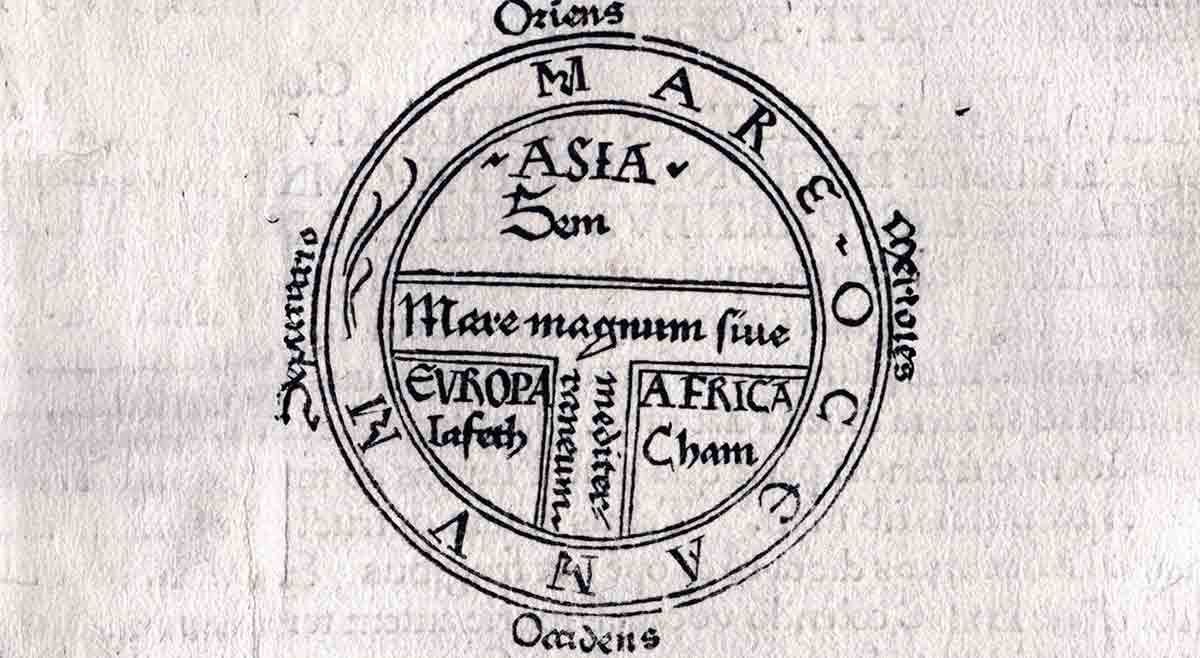 Oriens
MARE ~ OCEANVM
~ ASIA ~
Sem
Septentrio
Meridies
Mare magnum siue
mediter=
raneum
EVROPA
Iafeth
AFRICA
Cham
Occidens